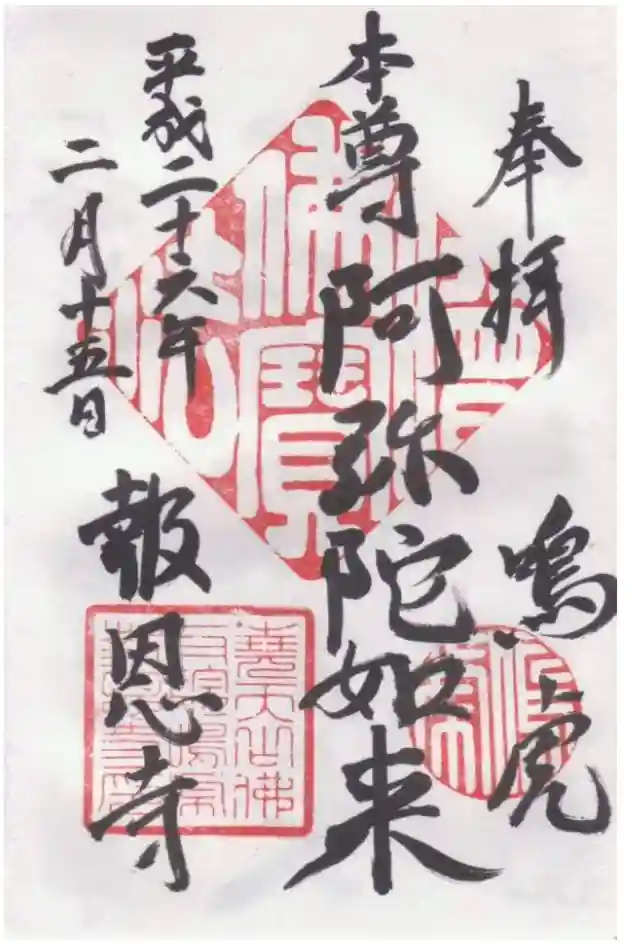 奉拝
鳴虎
本尊阿弥陀如来
平成二十六年
二月十五日
報恩寺
佛法僧寶